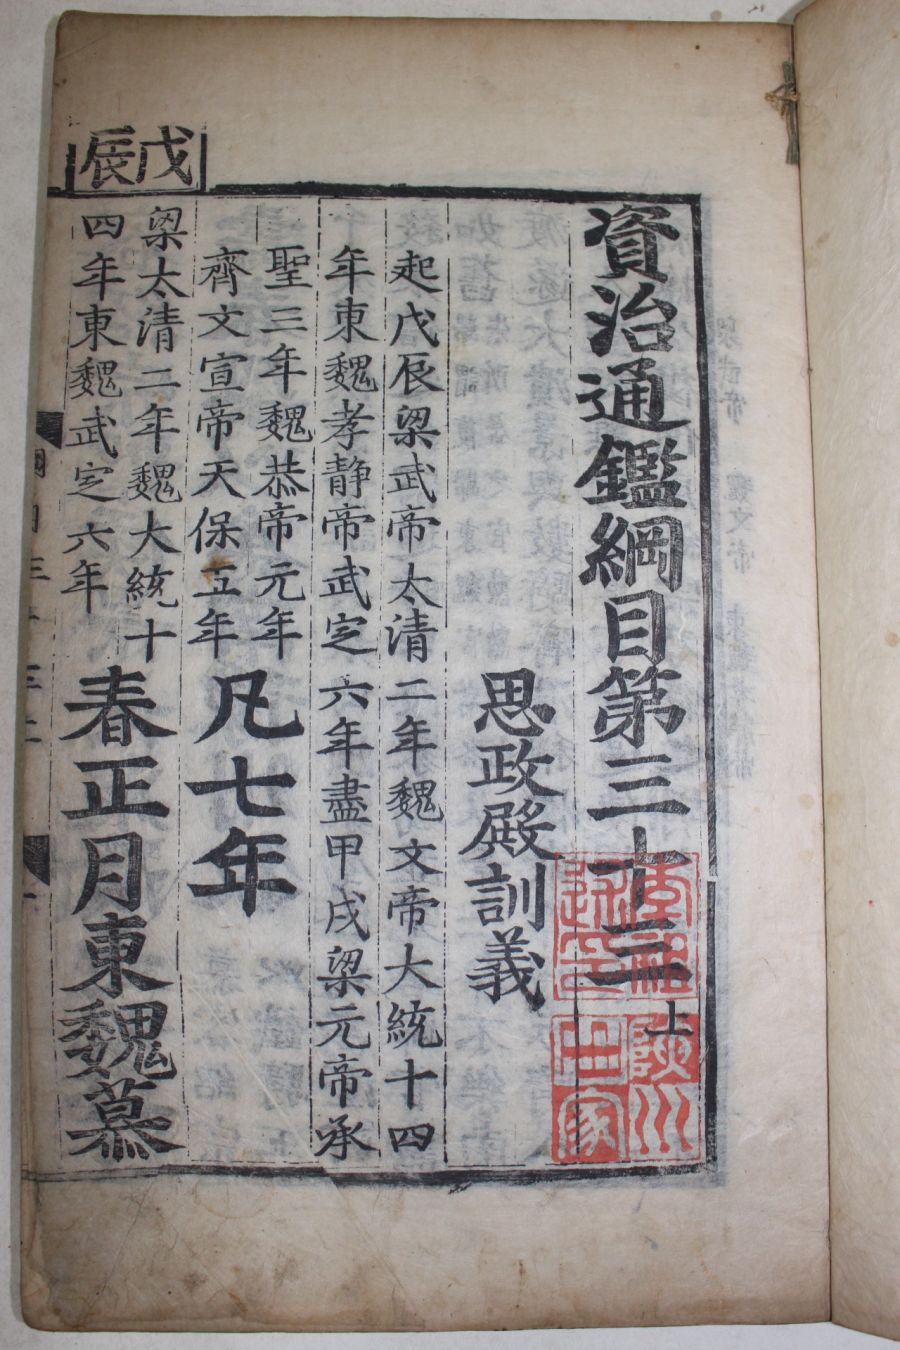 資治通鑑綱目第三十三上
思政殿訓義
起戊辰梁武帝太清二年魏文帝大統十四
年東魏孝静帝武定六年盡甲戌梁元帝承
聖三年魏恭帝元年
齊文宣帝天保五年
凡七年
戊辰
梁太清二年魏大統十
四年東魏武定六年
春正月東魏慕